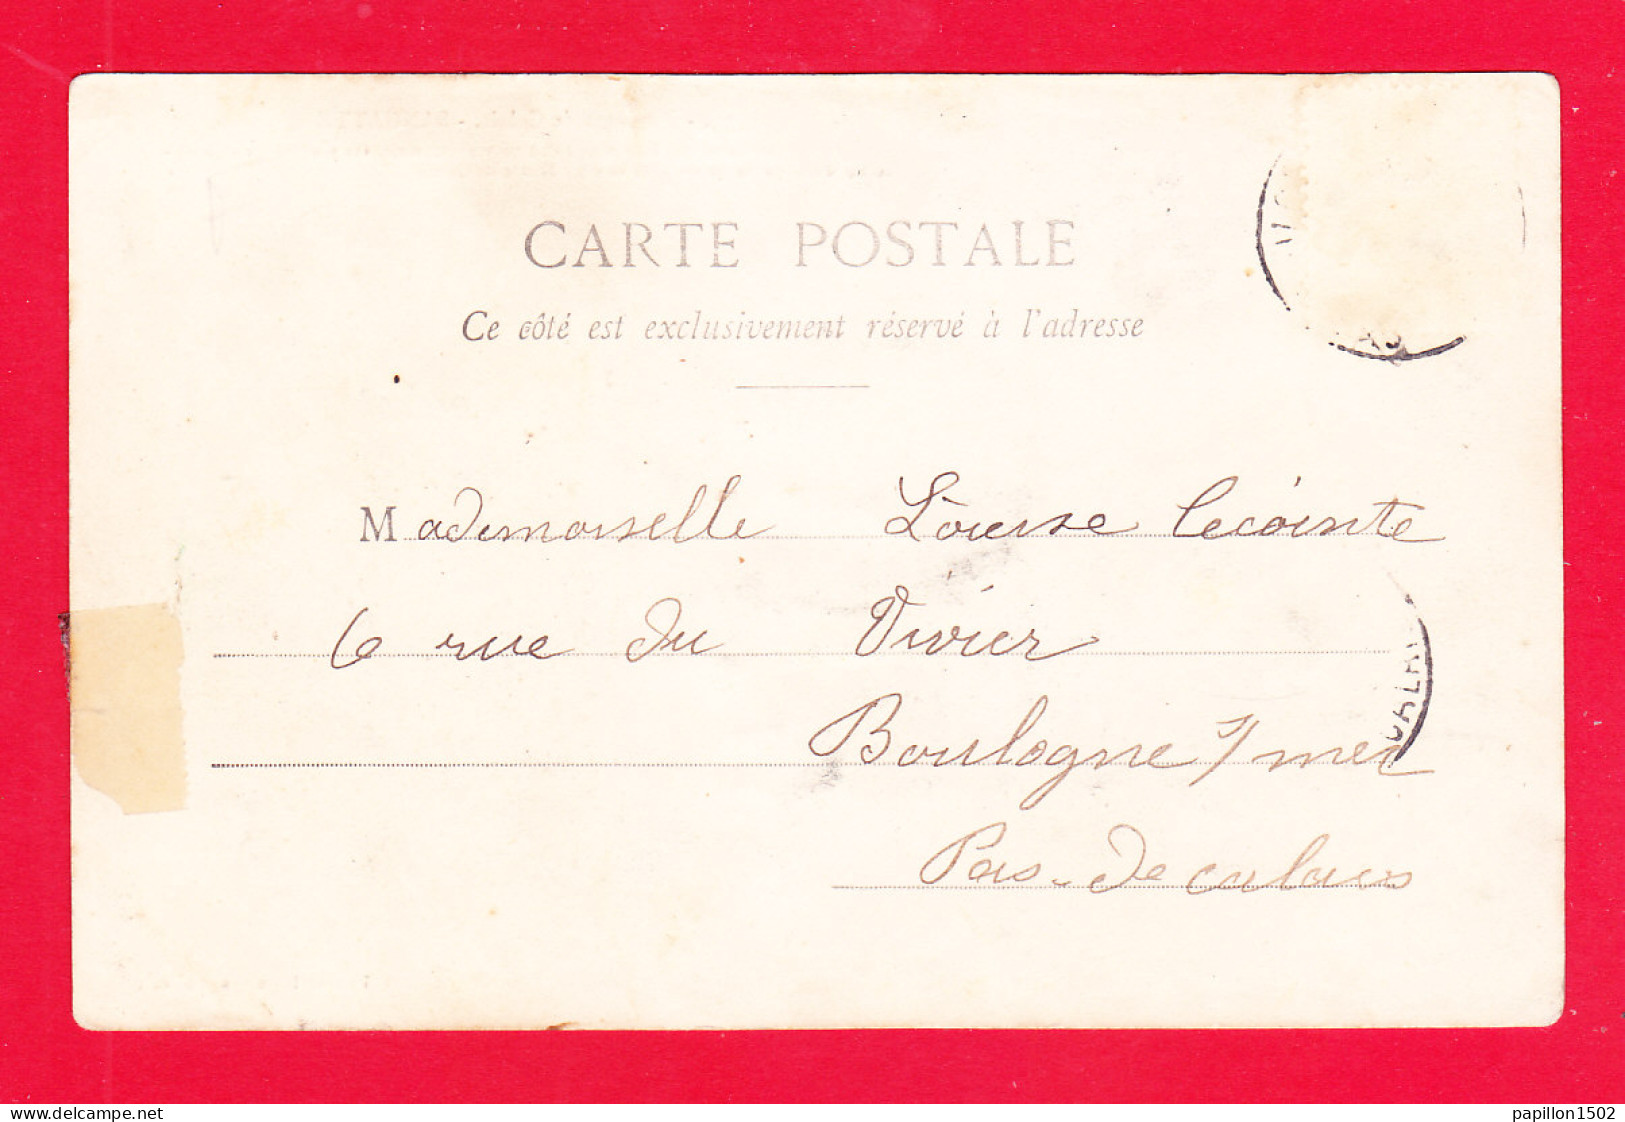 CARTE POSTALE
Ce côté est exclusivement réservé à l'adresse
Mademoiselle Louise Lecointe
6 rue du Vivier
Boulogne s/mer
Pas-de Calais
www.delcampe.net
papillon1502